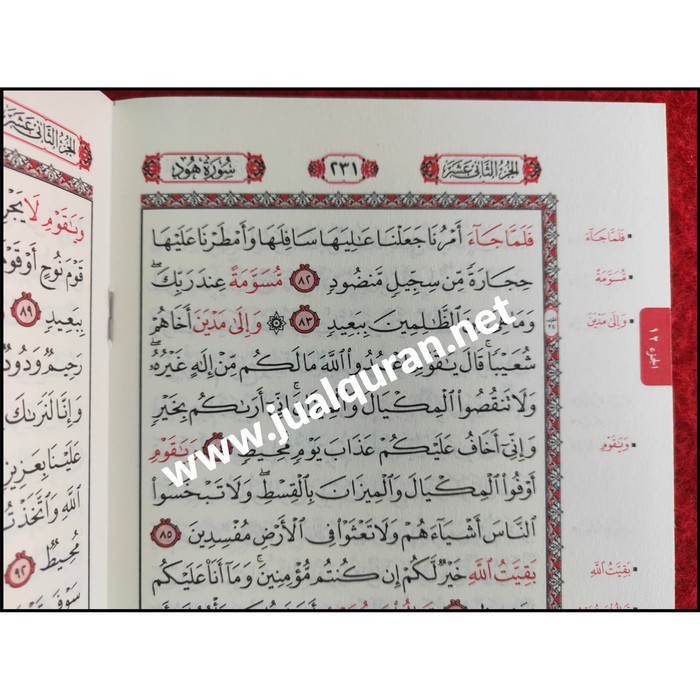 الجزء الثاني عشر
٢٣١
سورة هود
فَلَمَّا جَآءَ أَمْرُنَا جَعَلْنَا عَٰلِيَهَا سَافِلَهَا وَأَمْطَرْنَا عَلَيْهَا
حِجَارَةً مِّن سِجِّيلٍ مَّنضُودٍ ٨٢ مُّسَوَّمَةً عِندَ رَبِّكَۖ
وَمَا هِيَ مِنَ ٱلظَّٰلِمِينَ بِبَعِيدٍ ٨٣ ۞ وَإِلَىٰ مَدْيَنَ أَخَاهُمْ
شُعَيْبًاۚ قَالَ يَٰقَوْمِ ٱعْبُدُوا۟ ٱللَّهَ مَا لَكُم مِّنْ إِلَٰهٍ غَيْرُهُۥۖ
وَلَا تَنقُصُوا۟ ٱلْمِكْيَالَ وَٱلْمِيزَانَۚ إِنِّيٓ أَرَىٰكُم بِخَيْرٍ
وَإِنِّيٓ أَخَافُ عَلَيْكُمْ عَذَابَ يَوْمٍ مُّحِيطٍ وَيَٰقَوْمِ
أَوْفُوا۟ ٱلْمِكْيَالَ وَٱلْمِيزَانَ بِٱلْقِسْطِۖ وَلَا تَبْخَسُوا۟
ٱلنَّاسَ أَشْيَآءَهُمْ وَلَا تَعْثَوْا۟ فِي ٱلْأَرْضِ مُفْسِدِينَ ٨٥
بَقِيَّتُ ٱللَّهِ خَيْرٌ لَّكُمْ إِن كُنتُم مُّؤْمِنِينَۚ وَمَآ أَنَا۠ عَلَيْكُم
فَلَمَّا جَآءَ
مُّسَوَّمَةً
وَإِلَىٰ مَدْيَنَ
وَيَٰقَوْمِ
بَقِيَّتُ ٱللَّهِ
الجزء ١٢
الجزء الثاني عشر
وَيَٰقَوْمِ لَا
قَوْمَ نُوحٍ أَوْ قَوْمَ
بِبَعِيدٍ ٨٩
رَحِيمٌ وَدُودٌ
وَإِنَّا لَنَرَىٰكَ
عَلَيْنَا بِعَزِيزٍ
ٱللَّهِ وَٱتَّخَذْتُ
مُحِيطٌ ٩٢
سَوْفَ
www.jualquran.net